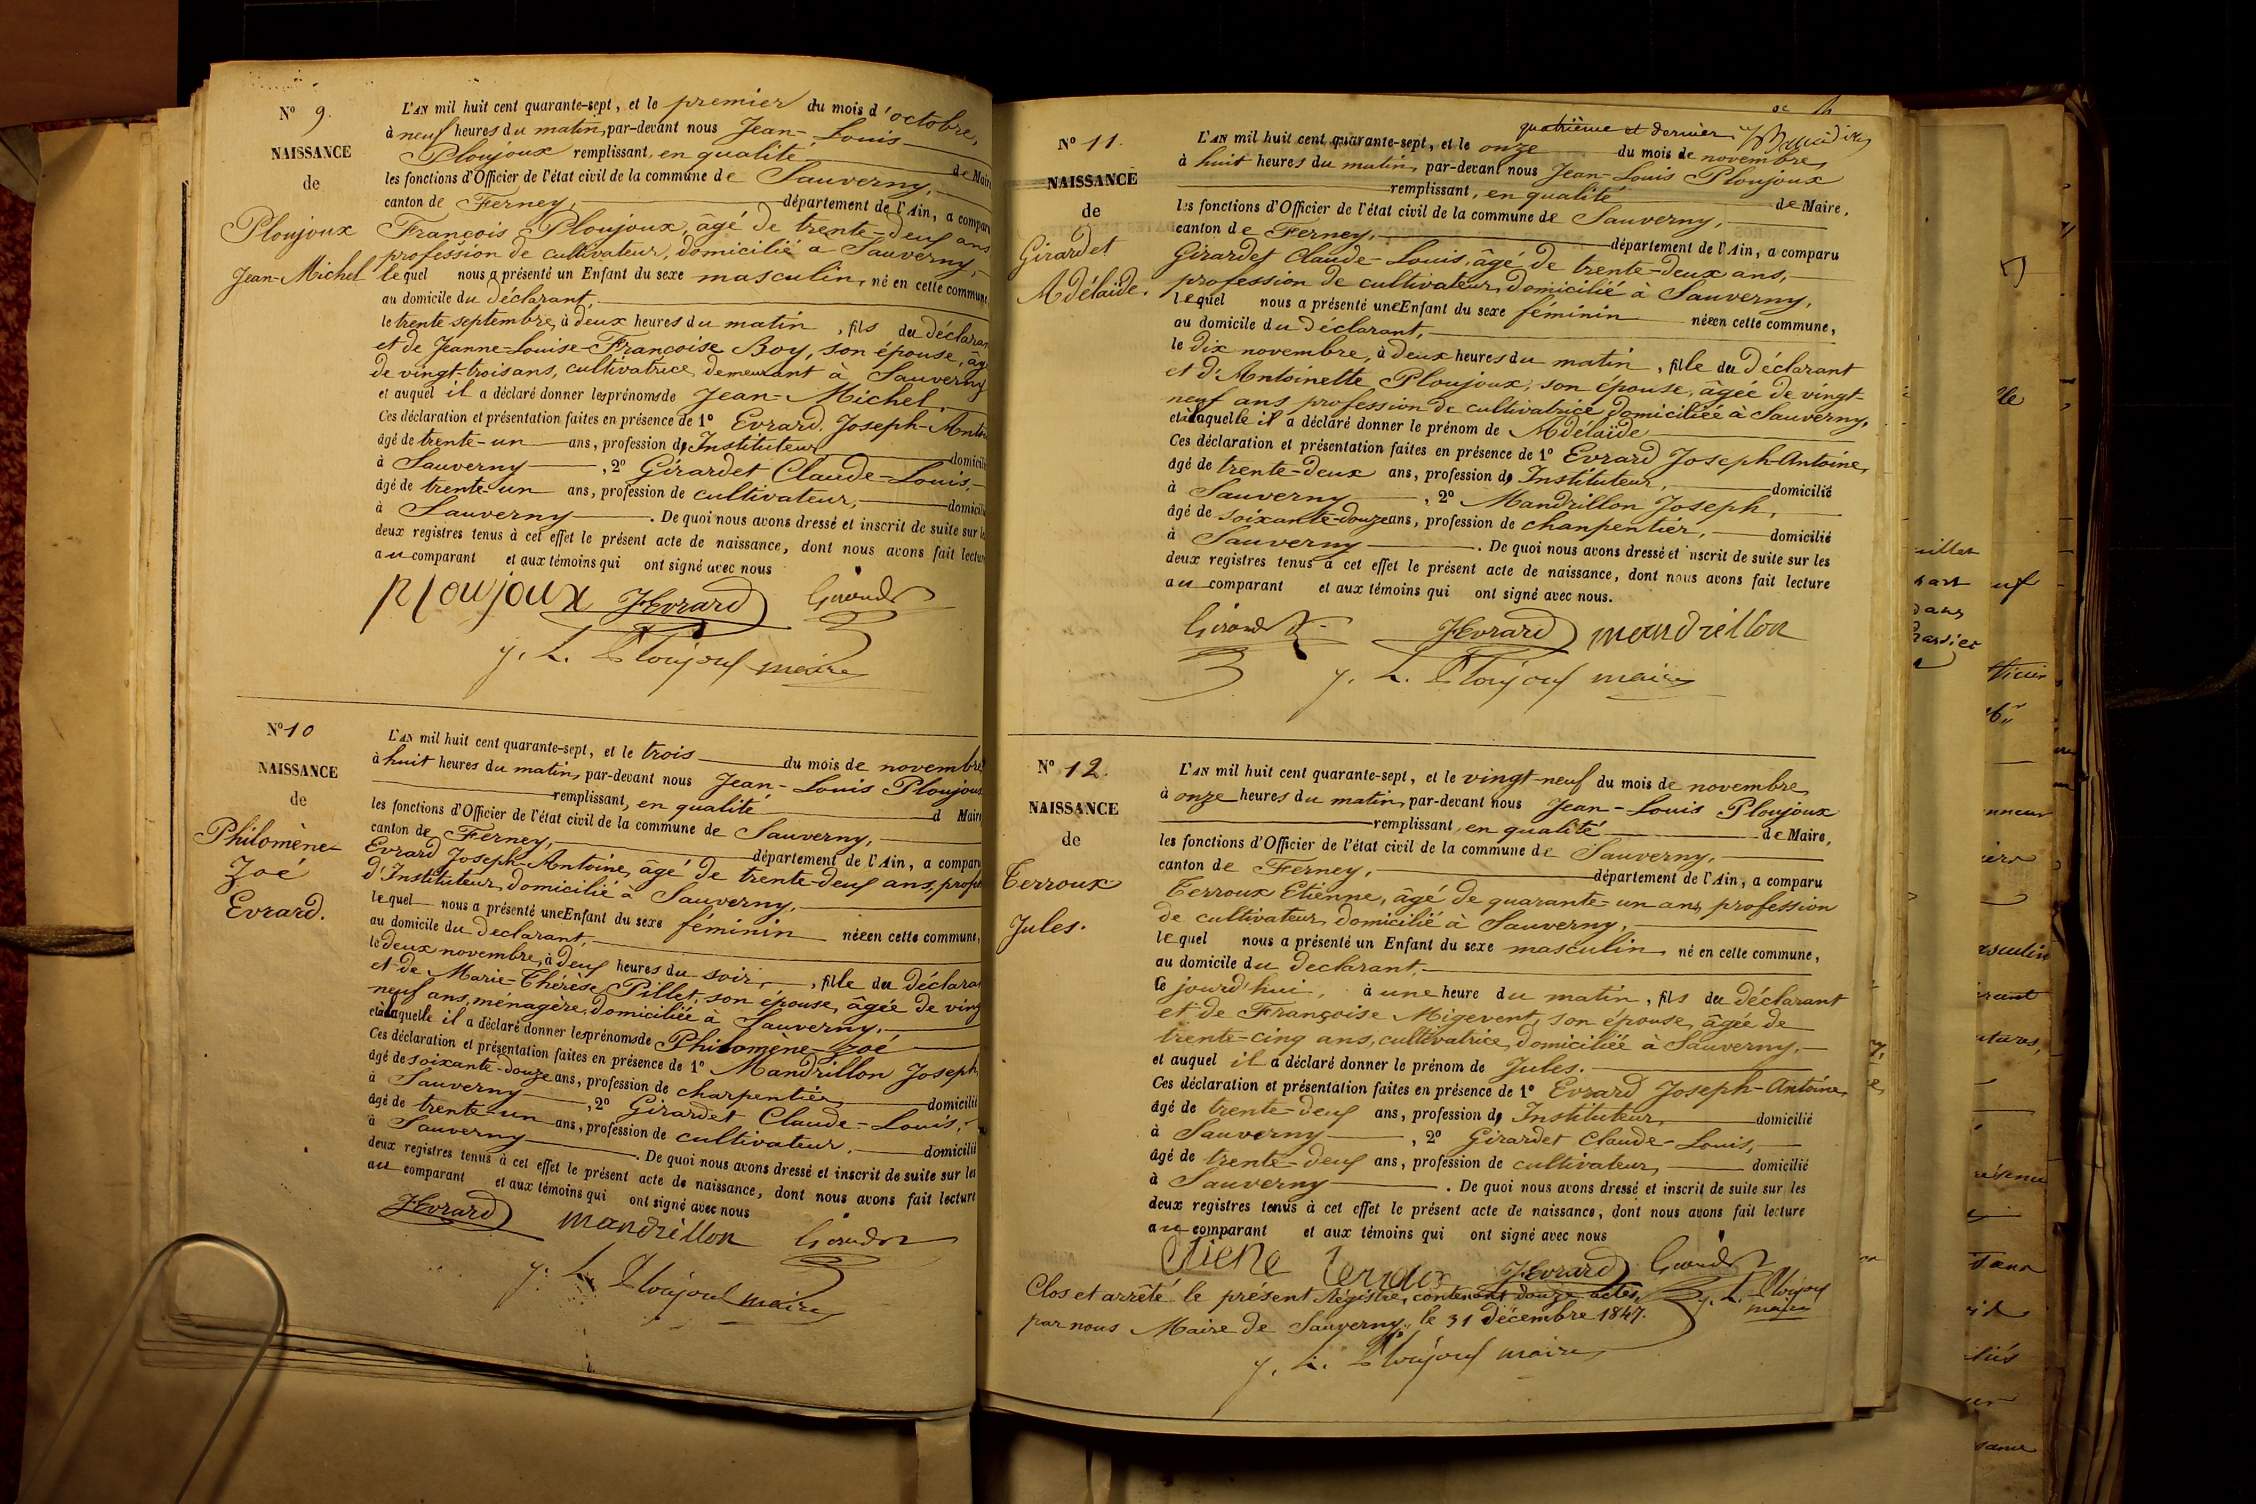 N° 9.
NAISSANCE
de
Ploujoux
Jean-Michel
L'AN mil huit cent quarante-sept, et le premier du mois d'octobre,
à neuf heures du matin, par-devant nous Jean-Louis
Ploujoux remplissant, en qualité de Maire
les fonctions d'Officier de l'état civil de la commune de Sauverny,
canton de Ferney, département de l'Ain, a comparu
François Ploujoux, âgé de trente-deuf ans
profession de cultivateur, domicilié a Sauverny,
lequel nous a présenté un Enfant du sexe masculin, né en cette commune,
au domicile du déclarant.
le trente septembre, à deux heures du matin, fils du déclarant
et de Jeanne-Louise-Françoise Boy, son épouse, âg
de vingt-trois ans, cultivatrice, demeurant à Sauverny
et auquel il a déclaré donner les prénoms de Jean-Michel.
Ces déclaration et présentation faites en présence de 1° Evrard Joseph-Anto
âgé de trente-un ans, profession d'Instituteur domicilié
à Sauverny, 2° Girardet Claude-Louis,
âgé de trente-un ans, profession de cultivateur, domicilié
à Sauverny. De quoi nous avons dressé et inscrit de suite sur le
deux registres tenus à cet effet le présent acte de naissance, dont nous avons fait lecture
au comparant et aux témoins qui ont signé avec nous
Ploujoux JEvrard Girardet
J. L. Ploujouf maire
N° 10
NAISSANCE
de
Philomène-
Zoé
Evrard.
L'AN mil huit cent quarante-sept, et le trois du mois de novembre,
à huit heures du matin, par-devant nous Jean-Louis Ploujoux
remplissant, en qualité d Maire
les fonctions d'Officier de l'état civil de la commune de Sauverny,
canton de Ferney, département de l'Ain, a comparu
Evrard Joseph-Antoine, âgé de trente-deuf ans, profes
d'Instituteur, domicilié à Sauverny,
lequel nous a présenté une Enfant du sexe féminin née en cette commune,
au domicile du declarant,
le deux novembre, à deuf heures du soir, fille du déclarat
et de Marie-Thérèse Pillet, son épouse, âgée de ving
neuf ans, ménagère, domiciliée à Sauverny,
et à laquelle il a déclaré donner les prénoms de Philomène-Zoé
Ces déclaration et présentation faites en présence de 1° Mandrillon Joseph
âgé de soixante-douze ans, profession de charpentier, domicilié
à Sauverny, 2° Girardet Claude-Louis,
âgé de trente-un ans, profession de cultivateur, domicilié
à Sauverny. De quoi nous avons dressé et inscrit de suite sur les
deux registres tenus à cet effet le présent acte de naissance, dont nous avons fait lecture
au comparant et aux témoins qui ont signé avec nous
JEvrard mandrillon Girardet
J. L. Ploujouf maire
quatrième et dernier
N° 11.
NAISSANCE
de
Girardet
Adélaïde.
L'AN mil huit cent quarante-sept, et le onze du mois de novembre,
à huit heures du matin, par-devant nous Jean-Louis Ploujoux
remplissant, en qualité de Maire,
les fonctions d'Officier de l'état civil de la commune de Sauverny,
canton de Ferney, département de l'Ain, a comparu
Girardet Claude-Louis, âgé de trente-deux ans,
profession de cultivateur, domicilié à Sauverny,
lequel nous a présenté une Enfant du sexe féminin née en cette commune,
au domicile du déclarant,
le dix novembre, à deux heures du matin, fille du déclarant
et d'Antoinette Ploujoux, son épouse, âgée de vingt-
neuf ans profession de cultivatrice domiciliée à Sauverny,
et à laquelle il a déclaré donner le prénom de Adélaïde
Ces déclaration et présentation faites en présence de 1° Evrard Joseph-Antoine,
âgé de trente-deux ans, profession d'Instituteur, domicilié
à Sauverny, 2° Mandrillon Joseph,
âgé de soixante-douze ans, profession de chanpentier, domicilié
à Sauverny. De quoi nous avons dressé et inscrit de suite sur les
deux registres tenus à cet effet le présent acte de naissance, dont nous avons fait lecture
au comparant et aux témoins qui ont signé avec nous.
Girardet JEvrard mandrillon
J. L. Ploujouf maire
N° 12.
NAISSANCE
de
Terroux
Jules.
L'AN mil huit cent quarante-sept, et le vingt-neuf du mois de novembre,
à onze heures du matin, par-devant nous Jean-Louis Ploujoux
remplissant, en qualité de Maire,
les fonctions d'Officier de l'état civil de la commune de Sauverny,
canton de Ferney, département de l'Ain, a comparu
Terroux Etienne, âgé de quarante-un ans, profession
de cultivateur, domicilié à Sauverny,
lequel nous a présenté un Enfant du sexe masculin, né en cette commune,
au domicile du declarant.
le jourd'hui, à une heure du matin, fils du déclarant
et de Françoise Migevent, son épouse, âgée de
trente-cinq ans, cultivatrice, domiciliée à Sauverny.
et auquel il a déclaré donner le prénom de Jules.
Ces déclaration et présentation faites en présence de 1° Evrard Joseph-Antoine,
âgé de trente-deuf ans, profession d'Instituteur, domicilié
à Sauverny, 2° Girardet Claude-Louis,
âgé de trente-deuf ans, profession de cultivateur, domicilié
à Sauverny. De quoi nous avons dressé et inscrit de suite sur les
deux registres tenus à cet effet le présent acte de naissance, dont nous avons fait lecture
au comparant et aux témoins qui ont signé avec nous
Etiene Terroux JEvrard Girardet
J. L. Ploujouf
maire
Clos et arrêté le présent Régistre, contenant douze actes,
par nous Maire de Sauverny, le 31 décembre 1847.
J. L. Ploujouf maire